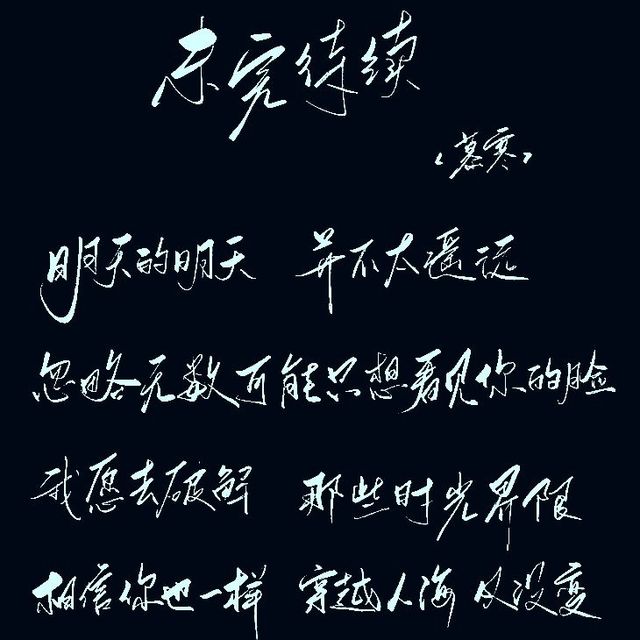 未完待续
（慕寒）
明天的明天 并不太遥远
忽略无数可能只想看见你的脸
我愿去破解 那些时光界限
相信你也一样 穿越人海 从没变